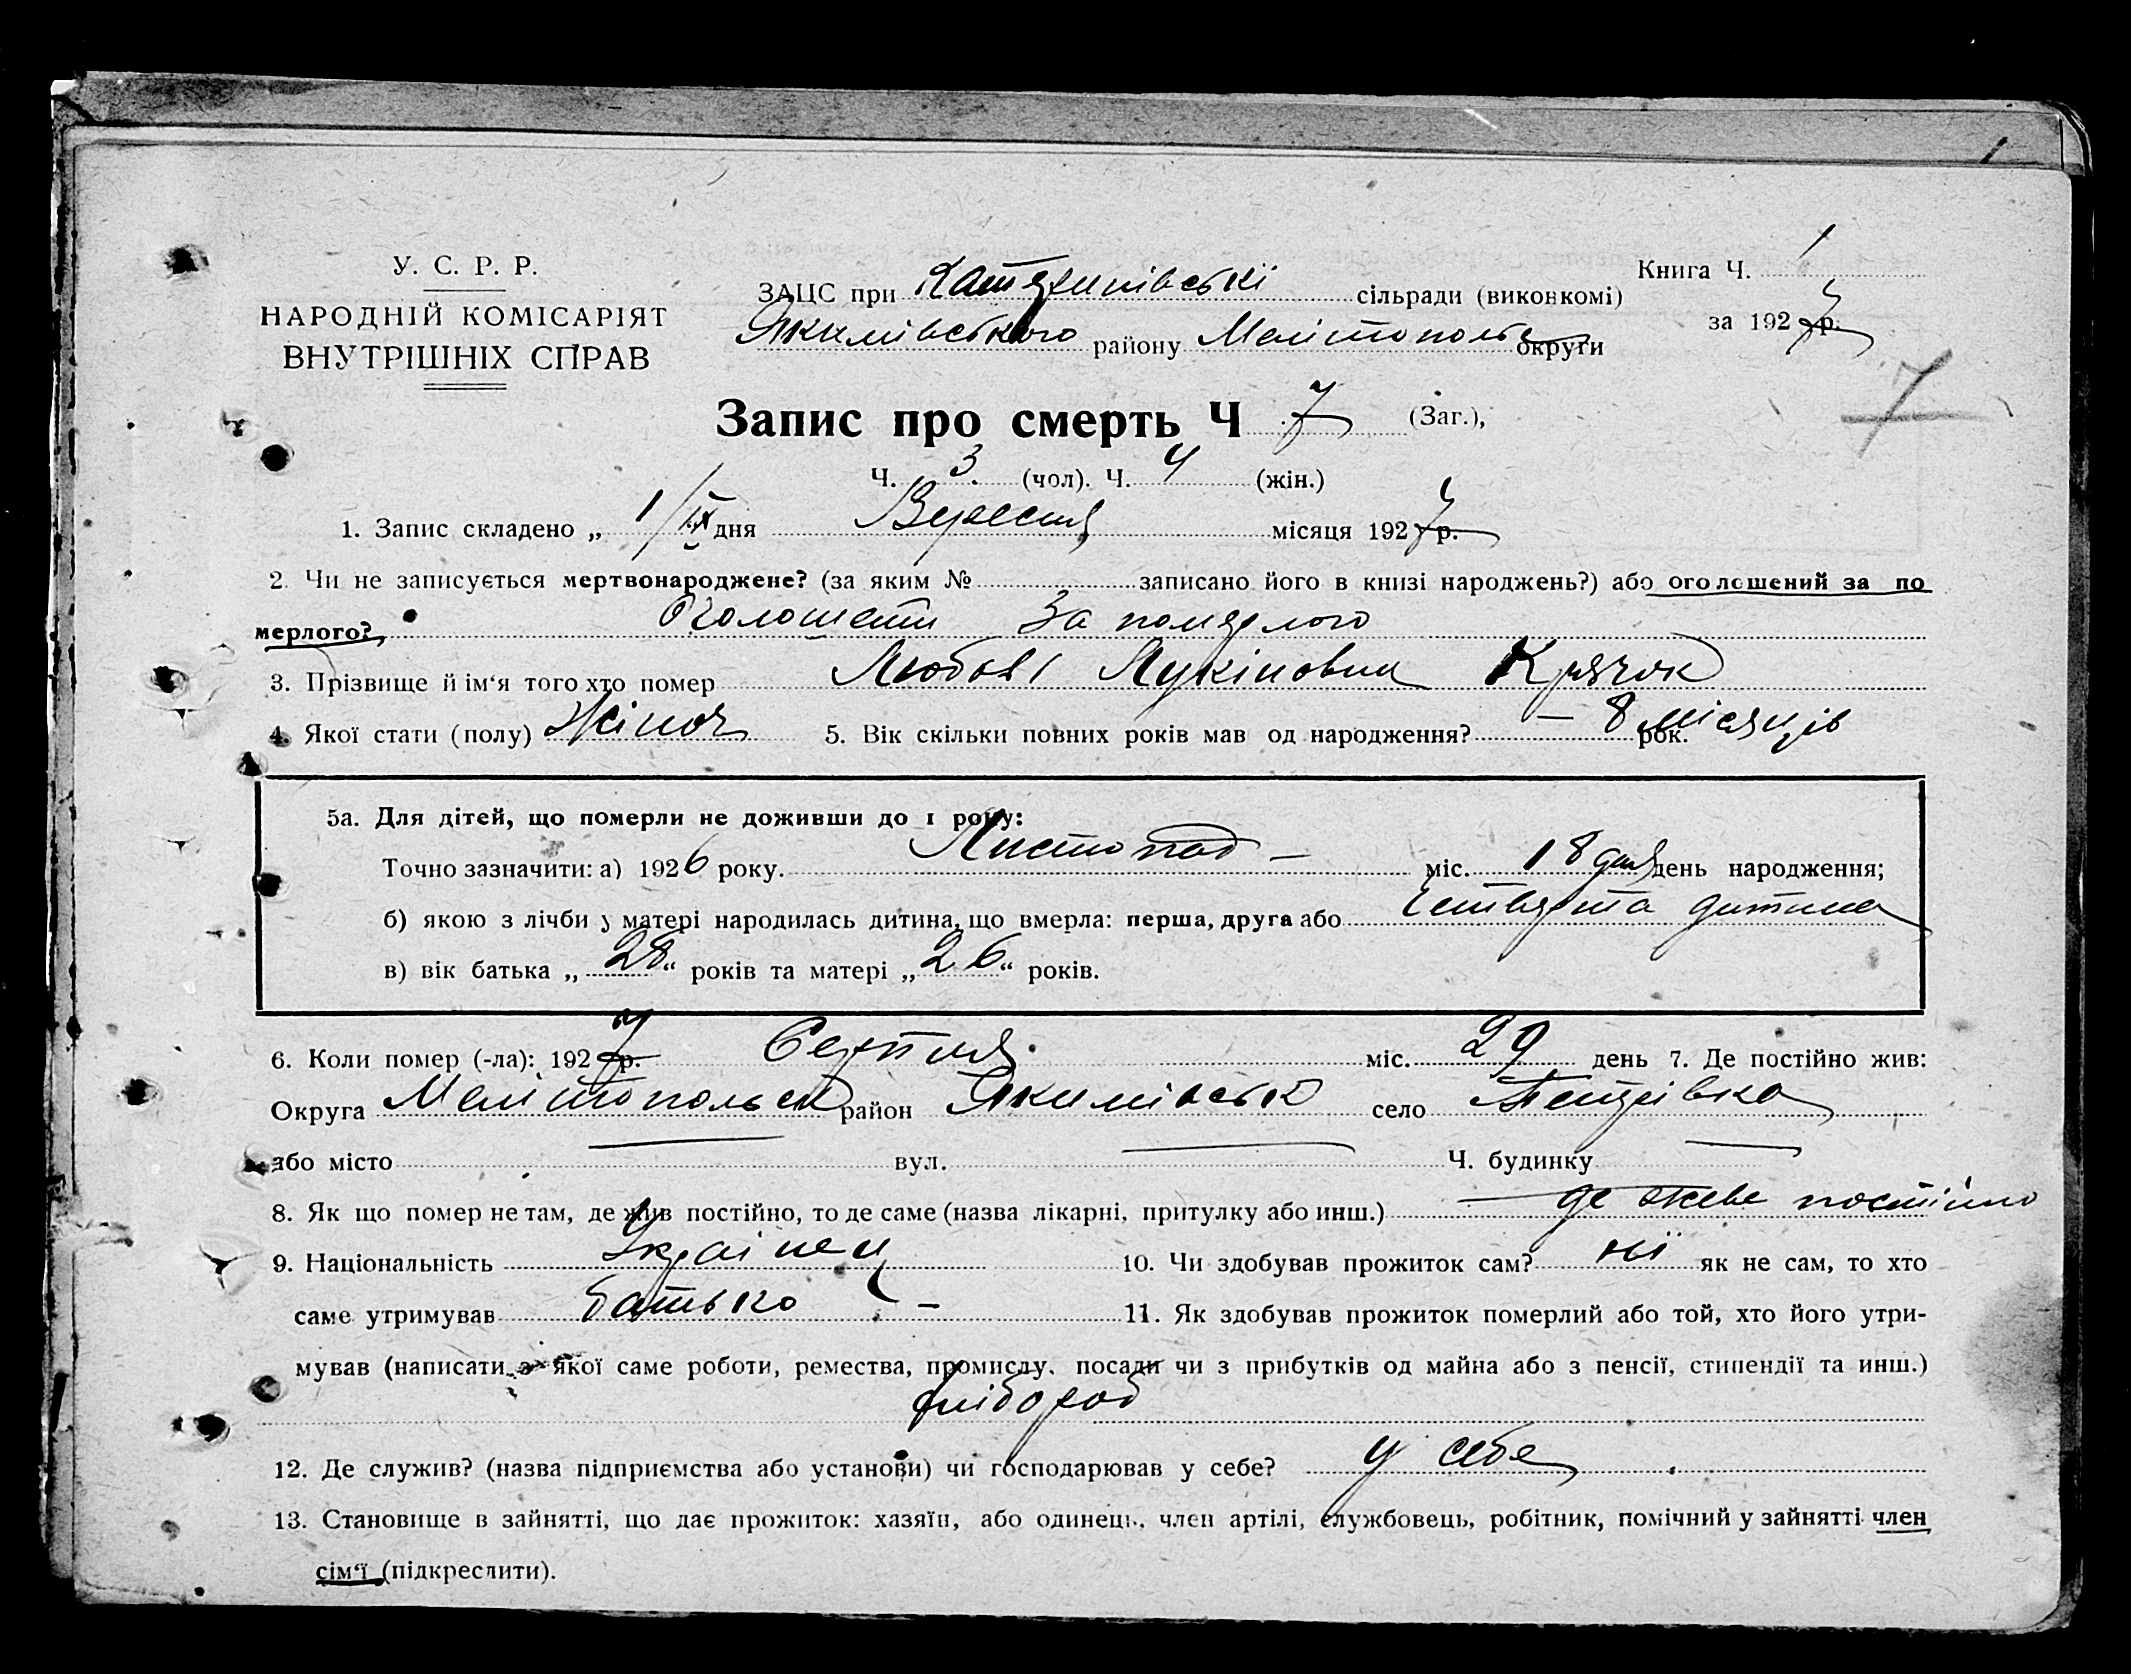 1
У. С. Р. Р.
НАРОДНІЙ КОМІСАРІЯТ
ВНУТРІШНІХ СПРАВ
ЗАЦС при Катеринівські сільради (виконкомі)
Якимівського району Мелітополь округи
Книга Ч. 1
за 1927 р.
7
Запис про смерть Ч 7 (Заг.),
Ч. 3 (чол). Ч. 4 (жін.)
1. Запис складено „ 1/IX дня Вересня місяця 1927 р.
2. Чи не записується мертвонароджене? (за яким № записано його в книзі народжень?) або оголошений за по
мерлого? Оголошети За померлого
3. Прізвище й ім‘я того хто помер Любові Лукіновна Крячок
4. Якої стати (полу) Жіноч 5. Вік скільки повних років мав од народження? — 8 місяців рок.
5а. Для дітей, що померли не доживши до 1 року:
Точно зазначити: а) 1926 року. Листопад — міс. 18 дня день народження;
б) якою з лічби у матері народилась дитина, що вмерла: перша, друга або Четверта дитина
в) вік батька „ 28 “ років та матері „ 26 “ років.
6. Коли помер (-ла): 1927 р. Серпня міс. 29 день 7. Де постійно жив:
Округа Мелітопольск район Якимівськ село Петрівка
або місто — вул. — Ч. будинку —
8. Як що помер не там, де жив постійно, то де саме (назва лікарні, притулку або инш.) — де живе постійно
9. Національність Українец 10. Чи здобував прожиток сам? ні як не сам, то хто
саме утримував батько — 11. Як здобував прожиток померлий або той, хто його утри-
мував (написати з якої саме роботи, ремества, промислу, посади чи з прибутків од майна або з пенсії, стипендії та инш.)
хлібороб
12. Де служив? (назва підприємства або установи) чи господарював у себе? у себе
13. Становище в зайнятті, що дає прожиток: хазяїн, або одинець, член артілі, службовець, робітник, помічний у зайнятті член
сім‘ї (підкреслити).